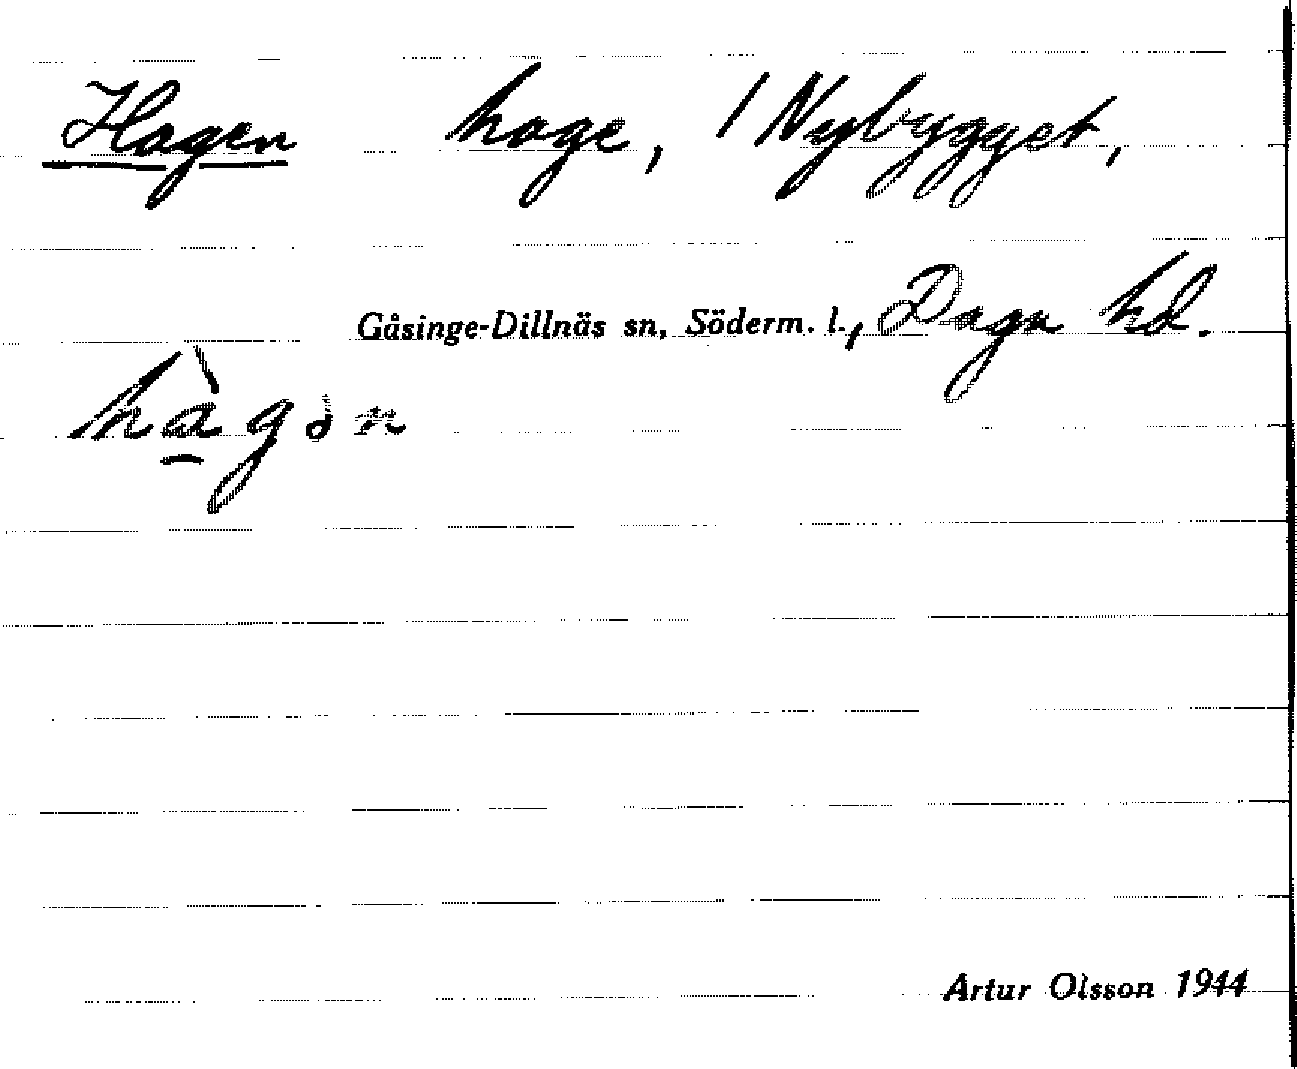 Hagen hage, / Nybygget,
Gåsinge-Dillnäs sn, Söderm. l., Daga hd.
hà̠gən
Artur Olsson 1944